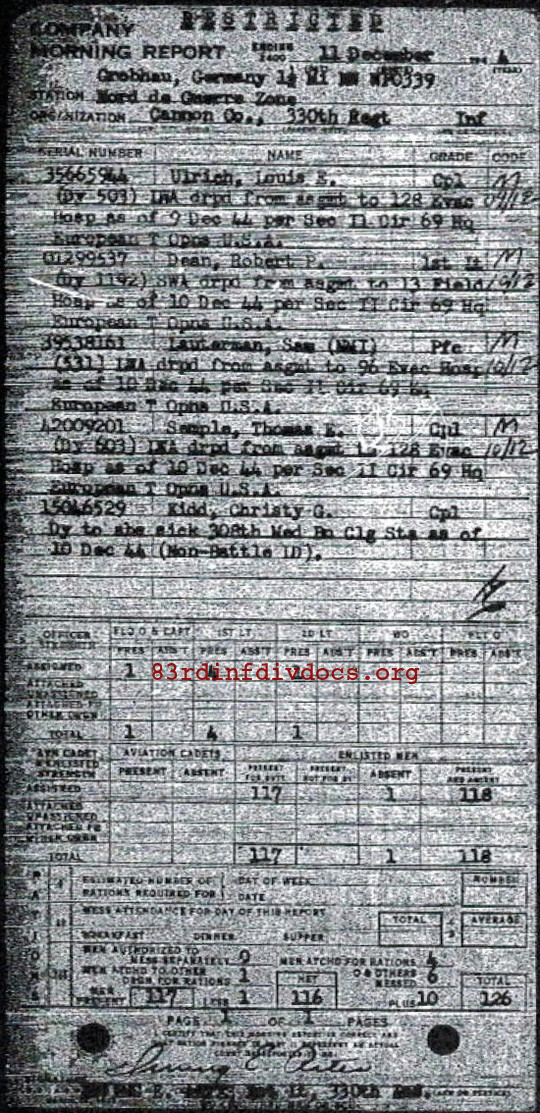 RESTRICTED
COMPANY
MORNING REPORT ENDING 2400 11 December 194 4 (YEAR)
Grobhau, Germany 1½ MI NW
STATION Nord de Guerre Zone
ORGANIZATION Cannon Co., 330th Regt Inf
SERIAL NUMBER NAME GRADE CODE
35665944 Ulrich, Louis E. Cpl M
(Dy 503) LWA drpd from asgmt to 128 Evac 09/12
Hosp as of 9 Dec 44 per Sec II Cir 69 Hq
European T Opns U.S.A.
O1299537 Dean, Robert P. 1st Lt M
(Dy 1192) SWA drpd from asgmt to 13 Field
Hosp as of 10 Dec 44 per Sec II Cir 69 Hq
European T Opns U.S.A.
39538161 Lauterman, Sam (NMI) Pfc M
(531) LWA drpd from asgmt to 96 Evac Hosp 10/12
as of 10 Dec 44 per Sec II Cir 69 Hq
European T Opns U.S.A.
42009201 Semple, Thomas E. Cpl M
(Dy 603) LWA drpd from asgmt to 128 Evac 10/12
Hosp as of 10 Dec 44 per Sec II Cir 69 Hq
European T Opns U.S.A.
15046529 Kidd, Christy G. Cpl
Dy to abs sick 308th Med Bn Clg Sta as of
10 Dec 44 (Non-Battle LD).
OFFICER STRENGTH FLD O & CAPT 1ST LT 2D LT WO FLT O
PRES ABS'T PRES ABS'T PRES ABS'T PRES ABS'T PRES ABS'T
ASSIGNED 1 4 1
83rdinfdivdocs.org
ATTACHED UNASSIGNED
ATTACHED FR OTHER ORGN
TOTAL 1 4 1
AVN CADET & ENLISTED STRENGTH AVIATION CADETS ENLISTED MEN
PRESENT ABSENT PRESENT FOR DUTY PRESENT NOT FOR DY ABSENT PRESENT AND ABSENT
ASSIGNED 117 1 118
ATTACHED UNASSIGNED
ATTACHED FR OTHER ORGN
TOTAL 117 1 118
ESTIMATED NUMBER OF RATIONS REQUIRED FOR DAY OF WEEK DATE NUMBER
MESS ATTENDANCE FOR DAY OF THIS REPORT TOTAL AVERAGE
BREAKFAST DINNER SUPPER
MEN AUTHORIZED TO MESS SEPARATELY 0 MEN ATCHD FOR RATIONS 4
MEN ATCHD TO OTHER ORGN FOR RATIONS 1 O & OTHERS MESSED 6
MEN PRESENT 117 LESS 1 NET 116 PLUS 10 TOTAL 126
PAGE 1 OF 1 PAGES